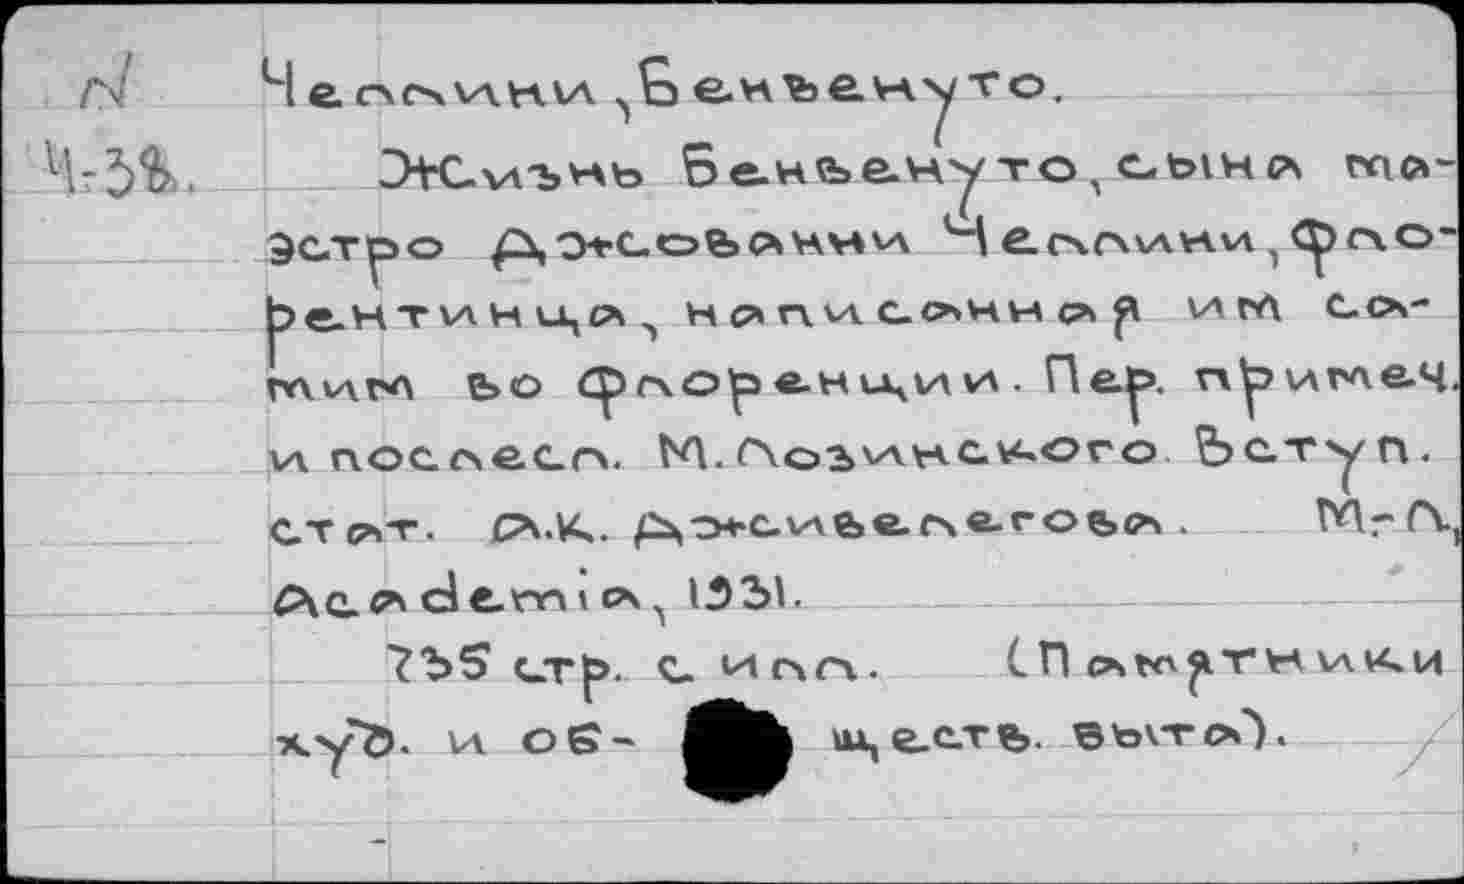 N Челлини, Бенвенуто.
Ч-38. Жизнь Бенвенуто, сына ма-
эстро Джованни Челлини, фло-
рентинца, написанная им са-
мим во флоренции. Пер. примеч.
и послесл. М. Лозинского Вступ.
стат. А.К. Дживелегова. М.-Л,
Academia, 1931.
735 стр. с илл. (Памятники
худ. и об-ществ. быта).